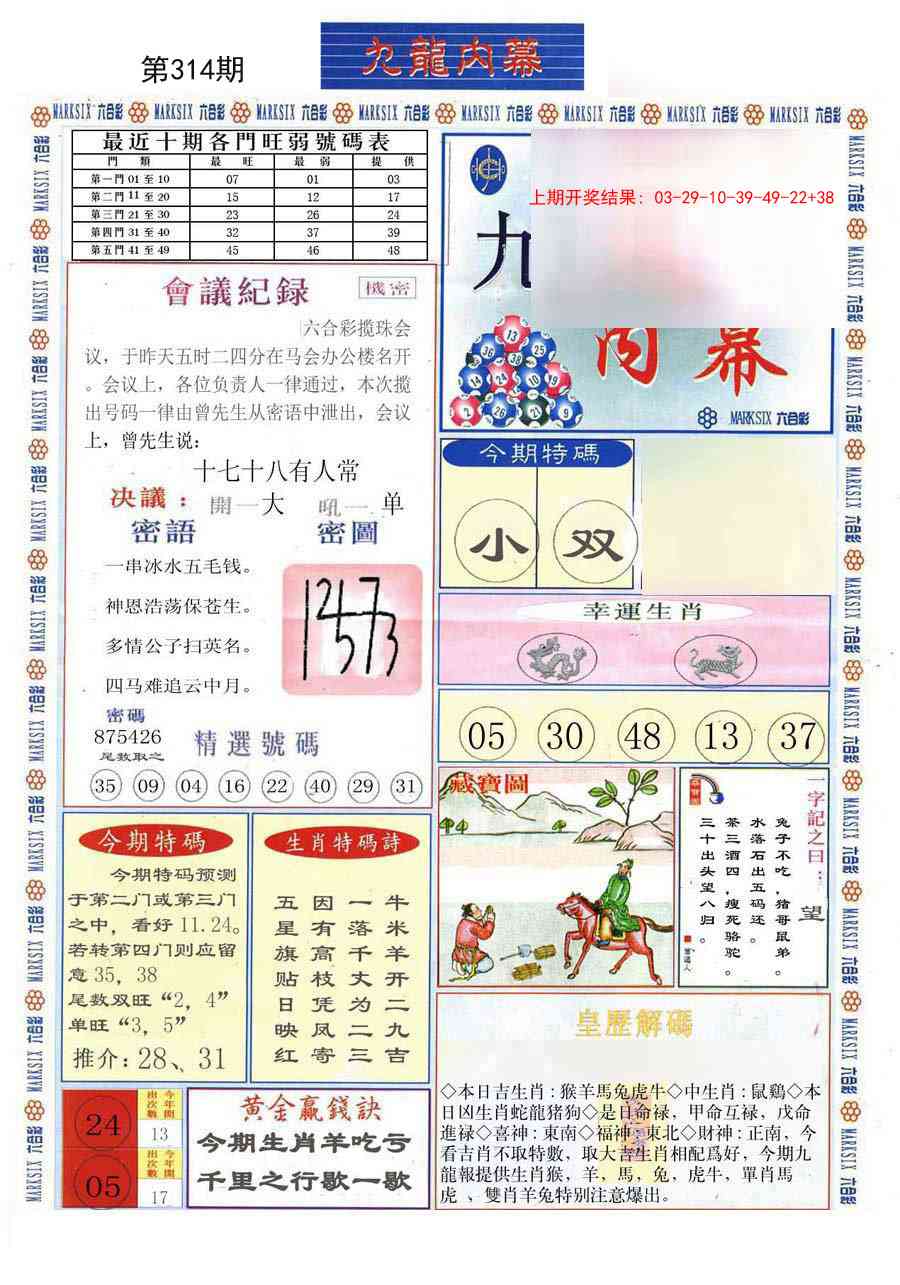 第314期
九龍内幕
MARKSIX 六合彩 MARKSIX 六合彩 MARKSIX 六合彩 MARKSIX 六合彩 MARKSIX 六合彩 MARKSIX 六合彩 MARKSIX 六合彩 MARKSIX 六合彩
最近十期各門旺弱號碼表
門類 最旺 最弱 提供
第一門 01 至 10 07 01 03
第二門 11 至 20 15 12 17
第三門 21 至 30 23 26 24
第四門 31 至 40 32 37 39
第五門 41 至 49 45 46 48
上期开奖结果: 03-29-10-39-49-22+38
九
内幕
13
36 38 25
14 24 10 19
2 26 21 9
MARKSIX 六合彩
會議紀録
機密
六合彩揽珠会
议，于昨天五时二四分在马会办公楼名开
。会议上，各位负责人一律通过，本次揽
出号码一律由曾先生从密语中泄出，会议
上，曾先生说:
十七十八有人常
决議： 開一大 吼一 单
密語 密圖
一串冰水五毛钱。
神恩浩荡保苍生。
多情公子扫英名。
四马难追云中月。
密碼
875426
尾数取之
精選號碼
35 09 04 16 22 40 29 31
今期特碼
小 双
幸運生肖
05 30 48 13 37
藏寶圖
一字記之曰：望
兔子不吃，猪哥鼠弟。
水落石出五码还。
茶三酒四，瘦死骆驼。
三十出头望八归。
今期特碼
今期特码预测
于第二门或第三门
之中，看好 11.24。
若转第四门则应留
意 35，38
尾数双旺“2，4”
单旺“3，5”
推介: 28、31
生肖特碼詩
牛米羊开二九吉
一落千丈为二三
因有高枝凭凤寄
五星旗贴日映红
24 今年開出次數 13
05 今年開出次數 17
黄金贏錢訣
今期生肖羊吃亏
千里之行歇一歇
皇歷解碼
◇本日吉生肖:猴羊馬兔虎牛◇中生肖:鼠鷄◇本
日凶生肖蛇龍猪狗◇是日命禄，甲命互禄，戊命
進禄◇喜神:東南◇福神:東北◇財神:正南，今
看吉肖不取特數，取大吉生肖相配爲好，今期九
龍報提供生肖猴，羊，馬，兔，虎牛，單肖馬
虎 、雙肖羊兔特别注意爆出。